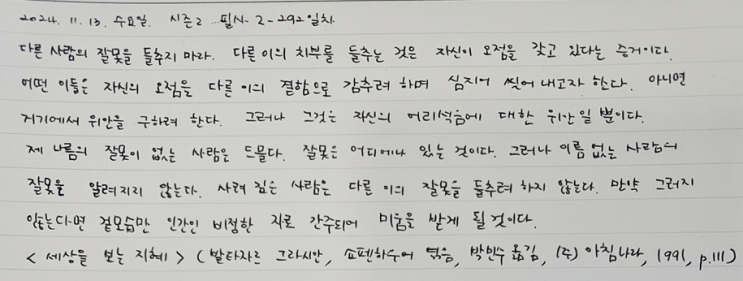 2024. 11. 13. 수요일. 시즌2 필사-2-292일차.
다른 사람의 잘못을 들추지 마라. 다른 이의 치부를 들추는 것은 자신이 오점을 갖고 있다는 증거이다.
어떤 이들은 자신의 오점을 다른 이의 결함으로 감추려 하며 심지어 씻어 내고자 한다. 아니면
거기에서 위안을 구하려 한다. 그러나 그것은 자신의 어리석음에 대한 위안일 뿐이다.
제 나름의 잘못이 없는 사람은 드물다. 잘못은 어디에나 있는 것이다. 그러나 이름 없는 사람의
잘못은 알려지지 않는다. 사려 깊은 사람은 다른 이의 잘못을 들추려 하지 않는다. 만약 그러지
않는다면 겉모습만 인간인 비정한 자로 간주되어 미움을 받게 될 것이다.
< 세상을 보는 지혜 > (발타자르 그라시안, 쇼펜하우어 엮음, 박민수 옮김, (주) 아침나라, 1991, p.111)